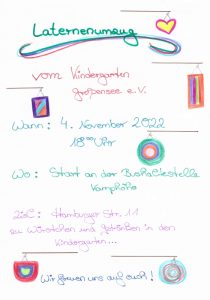 Laternenumzug
vom Kindergarten
Großensee e.V.
Wann: 4. November 2022
18:00 Uhr
Wo: Start an der Bushaltestelle
Ziel: Hamburger Str. 11
zu Würstchen und Getränken in den
Kindergarten...
Wir freuen uns auf euch!